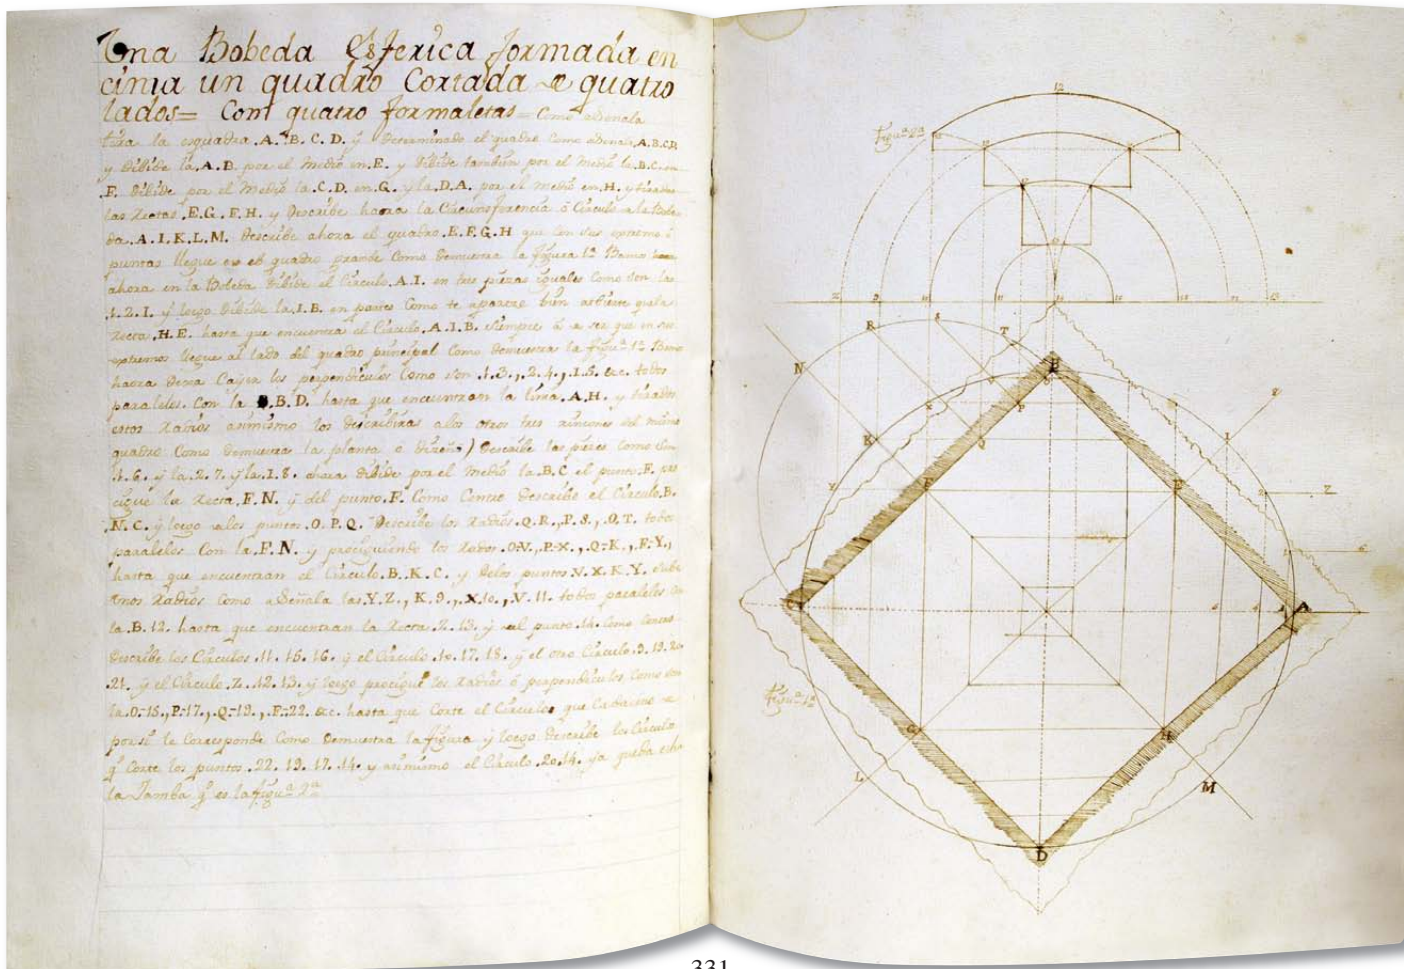 Una Bobeda Esferica formada en
cima un quadro Cortada de quatro
lados= Com quatro formaletas= Como aSenala
tira la esquadra .A.B.C.D. ÿ Determinado el quadro Como aSenala .A.B.C.D
y Dibide la .A.B. por el Medio en .E. y Dibide tambien por el Medio la .B.C. en
.F. Dibide por el Medio la .C.D. en .G. ÿ la .D.A. por el medio en .H. y tiradas
las Rectas .E.G. F.H. y Describe haora la Circunsferencia ò Circulo de la Bobe
da .A.I.K.L.M. Describe ahora el quadro .E.F.G.H que con sus extremos ò
puntas llegue en el quadro grande Como Demuestra la figura 1ª Bamos
ahora en la Bobeda Dibide el Circulo .A.I. en tres piezas iguales Como son las
.1.2.I. ÿ luego Dibide la .I.B. en partes Como te aparesca bien advierte que la
Recta .H.E. hasta que encuentra el Circulo .A.I.B. Siempre à de ser que en sus
extremos llegue al lado del quadro principal Como Demuestra la figuª 1ª Bamos
haora Dexa Caÿer los perpendiculos Como son .1.3., .2.4., .I.5. &c. todos
paraleles. Con la .B.D. hasta que encuentran la linia .A.H. y tirados
estos Radios asimismo los describiras a los otros tres rincones del mismo
quadro Como Demuestra la planta ò diseño) Describe las piezas Como son
.1.6. y la .2.7. ÿ la .I.8. ahora dibide por el Medio la .B.C. el punto .F. pro
cigue la Recta .F.N. ÿ del punto .F. Como Centro Describe el Circulo .B.
.N.C. ÿ luego de los puntos .O.P.Q. Describe los Radios .Q.R., .P.S., .O.T. todos
paraleles Con la .F.N. y prociguiendo los Rados .O-V., .P-X., .Q-K., .F-Y.,
hasta que encuentran el Circulo .B.K.C. y de los puntos .V.X.K.Y. Sube
unos Radios Como aSeñala las .Y.Z., K.9., .X.10., .V.11. todos paraleles Con
la .B.12. hasta que encuentran la Recta .Z.13. ÿ del punto .14. Como Centro
Describe los Circulos .11.15.16. ÿ el Circulo .10.17.18. ÿ el otro Circulo .9.19.20.
.21. y el Circulo .Z.12.13. y luego procigue los Radios ò perpendiculos Como son
la .O-15., P-17., .Q-19., .F-22. &c. hasta que Corte el Circulos que Cada uno de
por sì le Corresponde Como Demuestra la figura ÿ luego Describe los Circulos
q̃ Corte los puntos .22.19.17.14. y asimismo el Circulo .20.14. ya queda echa
la Jamba q̃ es la figuª 2ª
12
figuª 2ª
Z 9 10 11 14 15 18 21 13
R S T
N B
V
X P
8
K Q I
F E
Y 2 7
1 6
C A
G H
figuª 1ª
L M
D
331